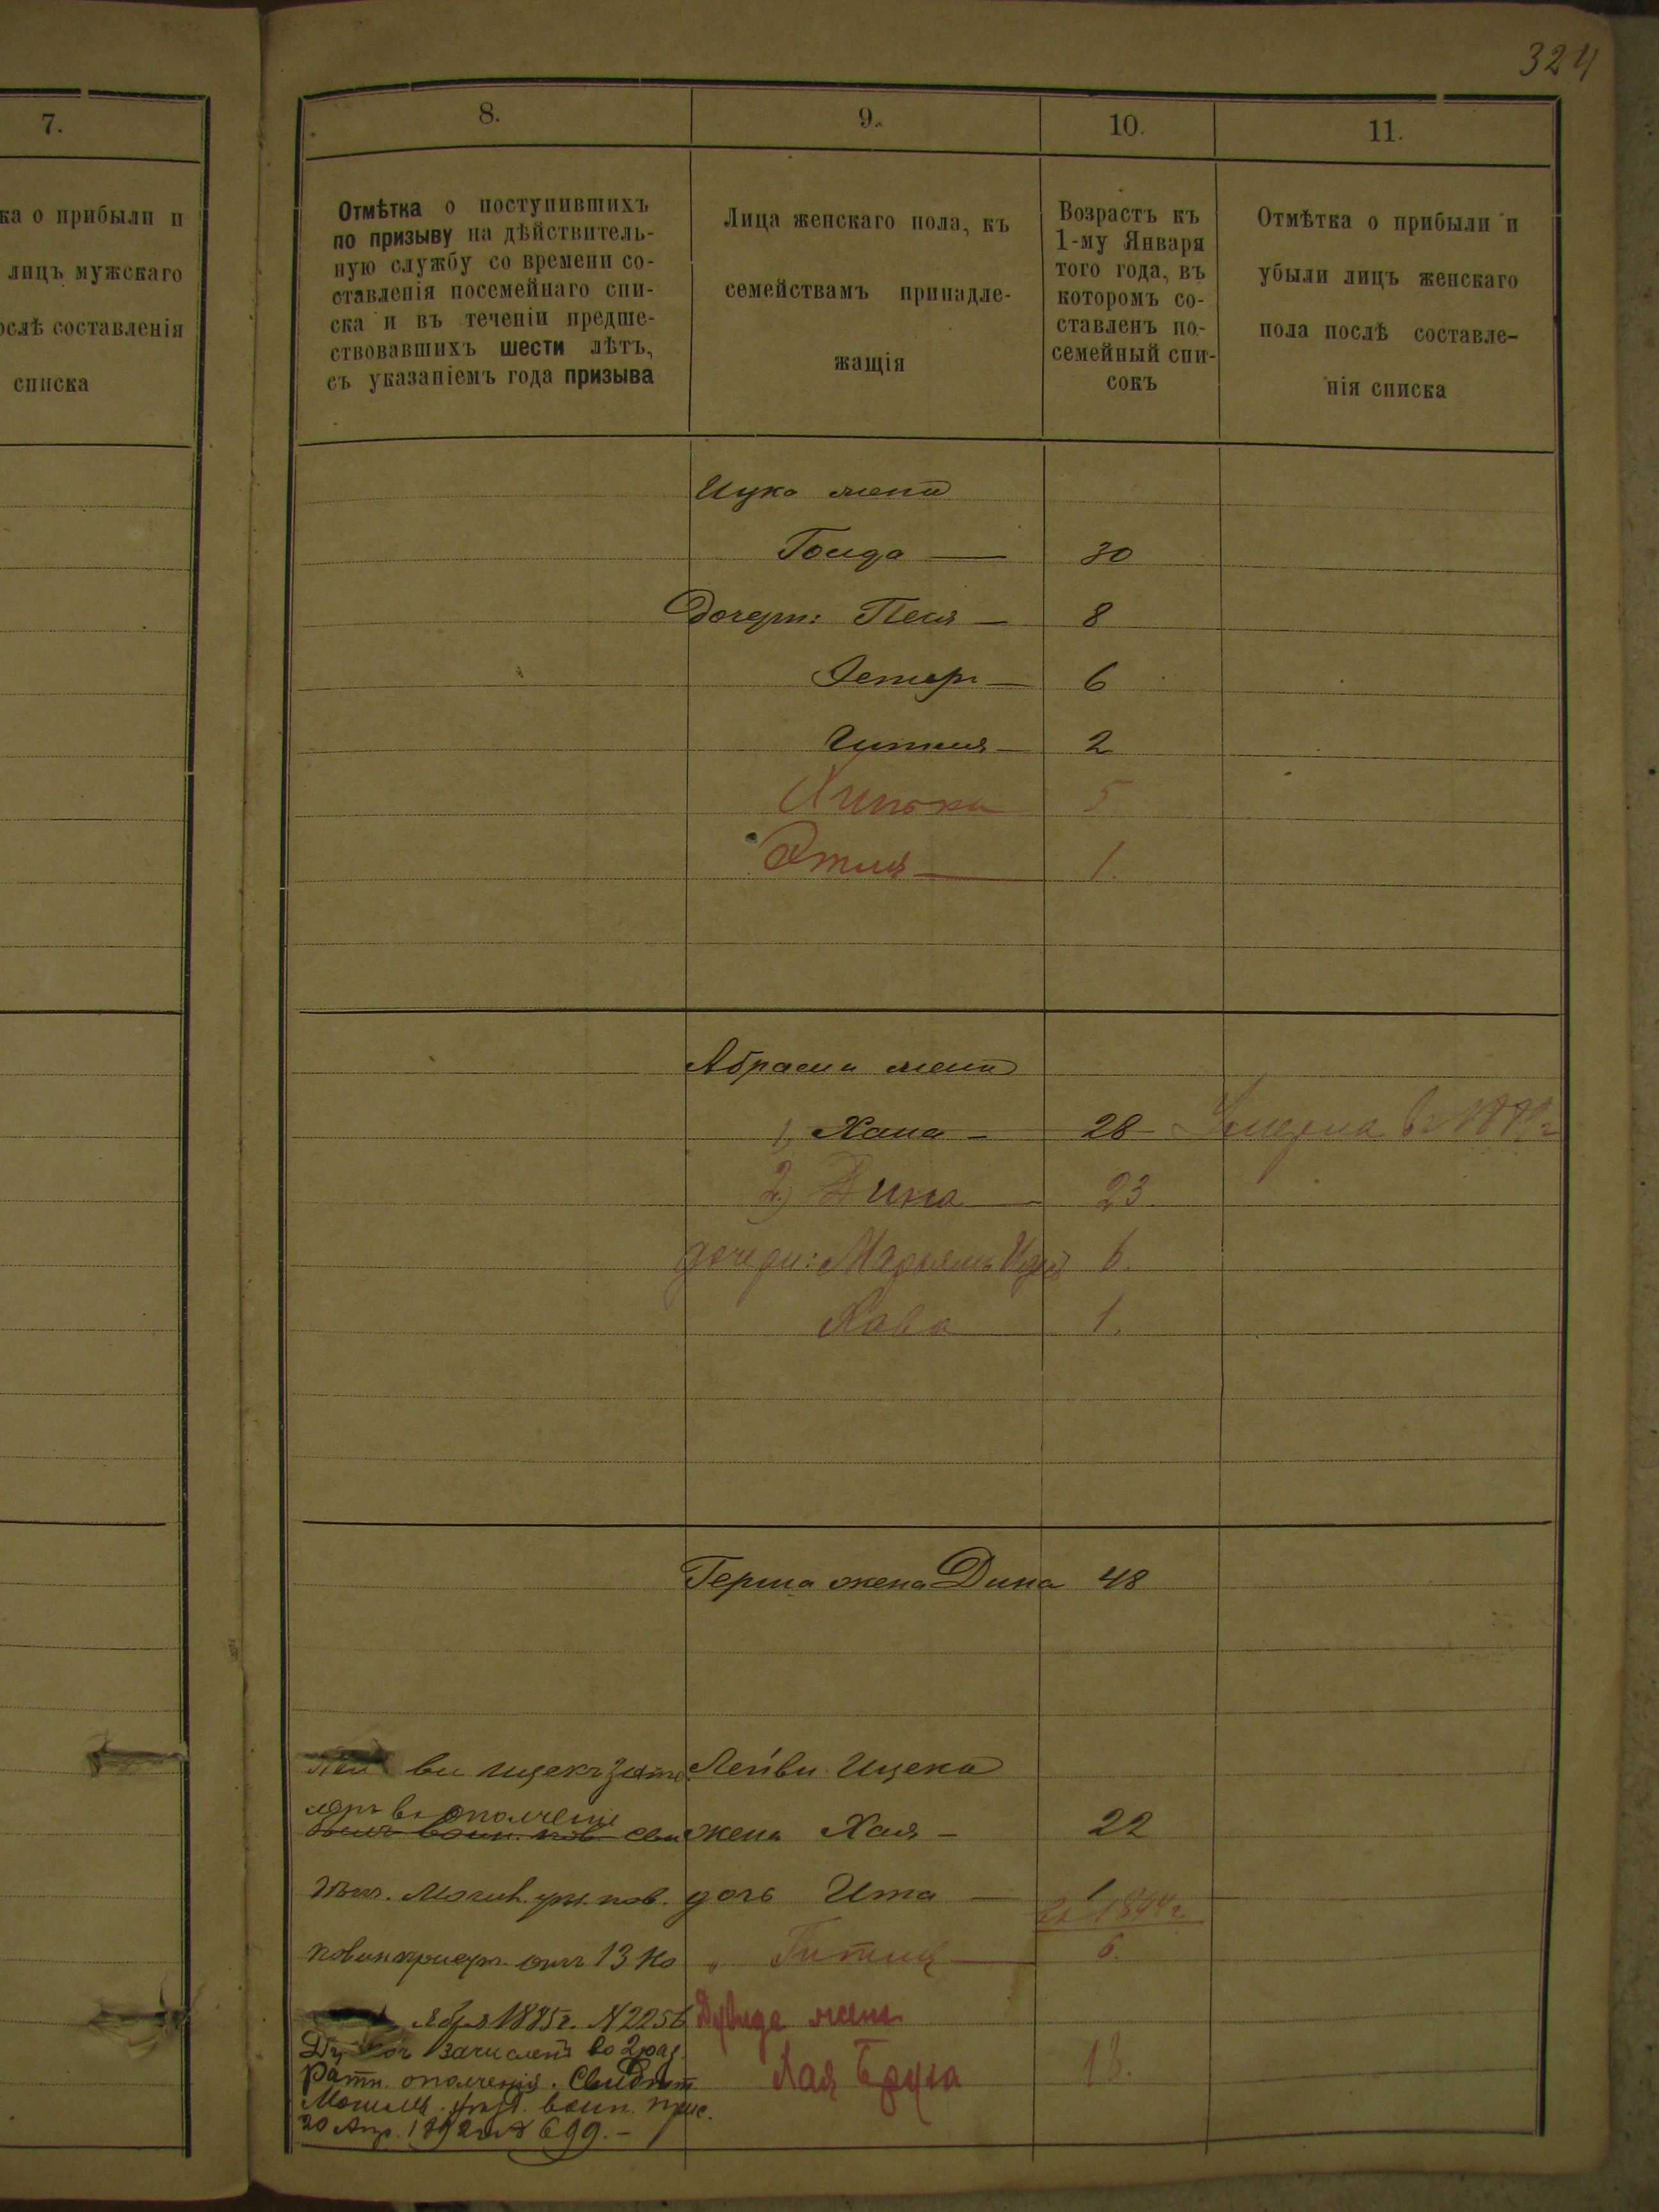 324
7.
ка о прибыли и
лицъ мужскаго
ослѣ составленія
списка
8.
9.
10.
11.
Отмѣтка о поступившихъ
по призыву на дѣйствитель-
ную службу со времени со-
ставленія посемейнаго спи-
ска и въ теченіи предше-
ствовавшихъ шести лѣтъ,
съ указаніемъ года призыва
Лица женскаго пола, къ
семействамъ принадле-
жащія
Возрастъ къ
1-му Января
того года, въ
которомъ со-
ставленъ по-
семейный спи-
сокъ
Отмѣтка о прибыли и
убыли лицъ женскаго
пола послѣ составле-
нія списка
Ицка жены
30
Дочери: Песя — 8
Эстеръ — 6
2
5
Этля — 1.
Абрама жены
1, Хана — 28 Умерла въ
2) Дина — 23
дочери: Марьямъ 6.
Хава 1.
Герша жена Дина 48
ви Ицекъ Лейви Ицека
въ ополчение
жена Хая — 22
Могил. уѣз. дочь Ита — 1
въ 1894 г.
отъ 13 Но " Гитля — 6.
ября 1885 г. N 2256 Дувида жена
зачисленъ во 2 раз.
Ратн. ополченія. Свидѣт Хая Бруха 18.
Могилев. уѣзд. воин. прис.
20 Апр. 1892 г. № 699. —